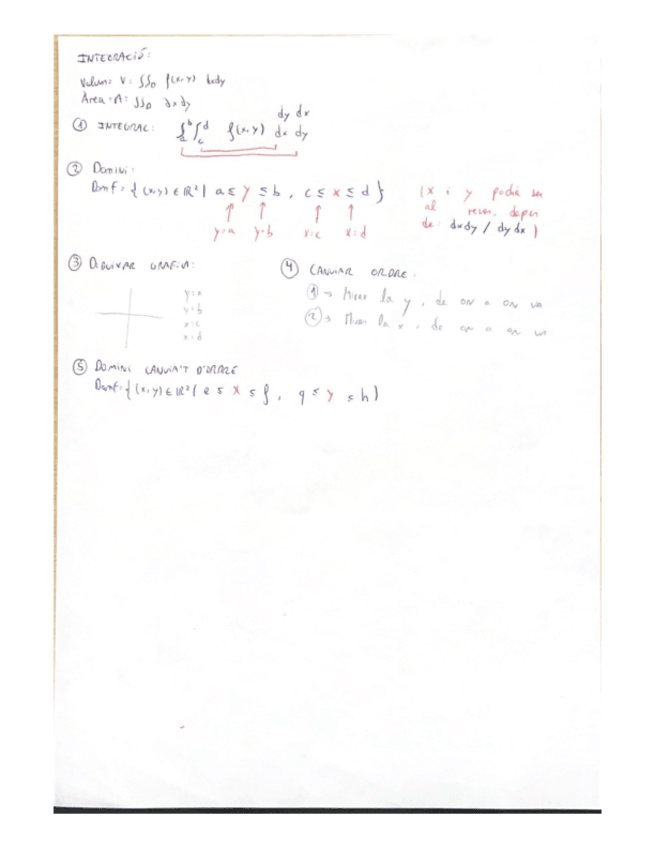 INTEGRACIÓ:
Volum: V: ∫∫D f(x,y) dxdy
Àrea: A: ∫∫D dxdy
dy dx
① INTEGRAL: ∫a^b ∫c^d f(x,y) dx dy
② Domini:
Domf = { (x,y) ∈ R² | a ≤ y ≤ b , c ≤ x ≤ d } (x i y podria ser
al reves, depen
de: dxdy / dydx )
y=a y=b x=c x=d
③ DIBUIXAR GRAFICA:
y=a
y=b
x=c
x=d
④ CANVIAR ORDRE:
① → Mirar la y, de on a on va
② → Mirar la x, de on a on va
⑤ DOMINI CANVIA'T D'ORDRE
Domf = { (x,y) ∈ R² | e ≤ x ≤ f , g ≤ y ≤ h }